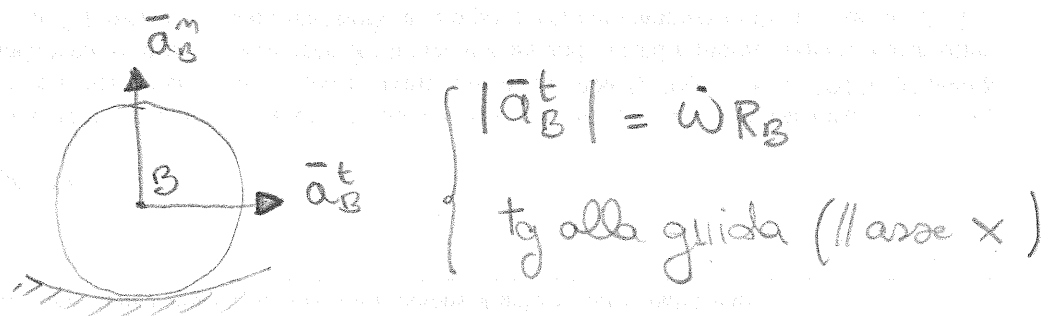 ā_B^n
B
ā_B^t
|ā_B^t| = ω̇ R_B
tg alla guida (// asse x)